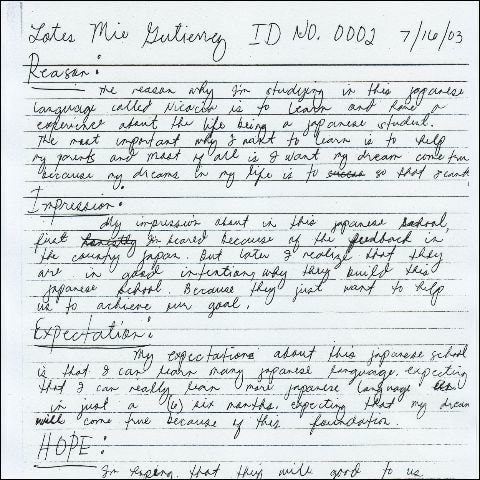 Lotes Mie Gutierrez ID NO. 0002 7/16/03
Reason:
The reason why I'm studying in this japanese
language called Nicacin is to learn and have a
experience about the life being a japanese student.
The most important why I want to learn is to help
my parents and most of all is I want my dream come true
because my dreams in my life is to so that I can't
Impression:
My impression about in this japanese school,
first honestly I'm scared because of the feedback in
the country japan. But later I realize that they
are in good intentions why they build this
japanese school. Because they just want to help
us to achieve our goal.
Expectation:
My expectations about this japanese school
is that I can learn many japanese language. expecting
that I can really learn more japanese language
in just a (6) six months. expecting that my dream
will come true because of this foundation.
HOPE:
I'm hoping that they will good to us